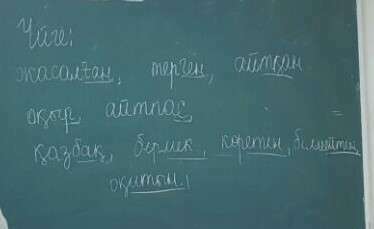 Үйге:
жасалған, терген, айтқан
оқыр, айтпас
қазбақ, бермек, көретін, білмейтін,
оқитын